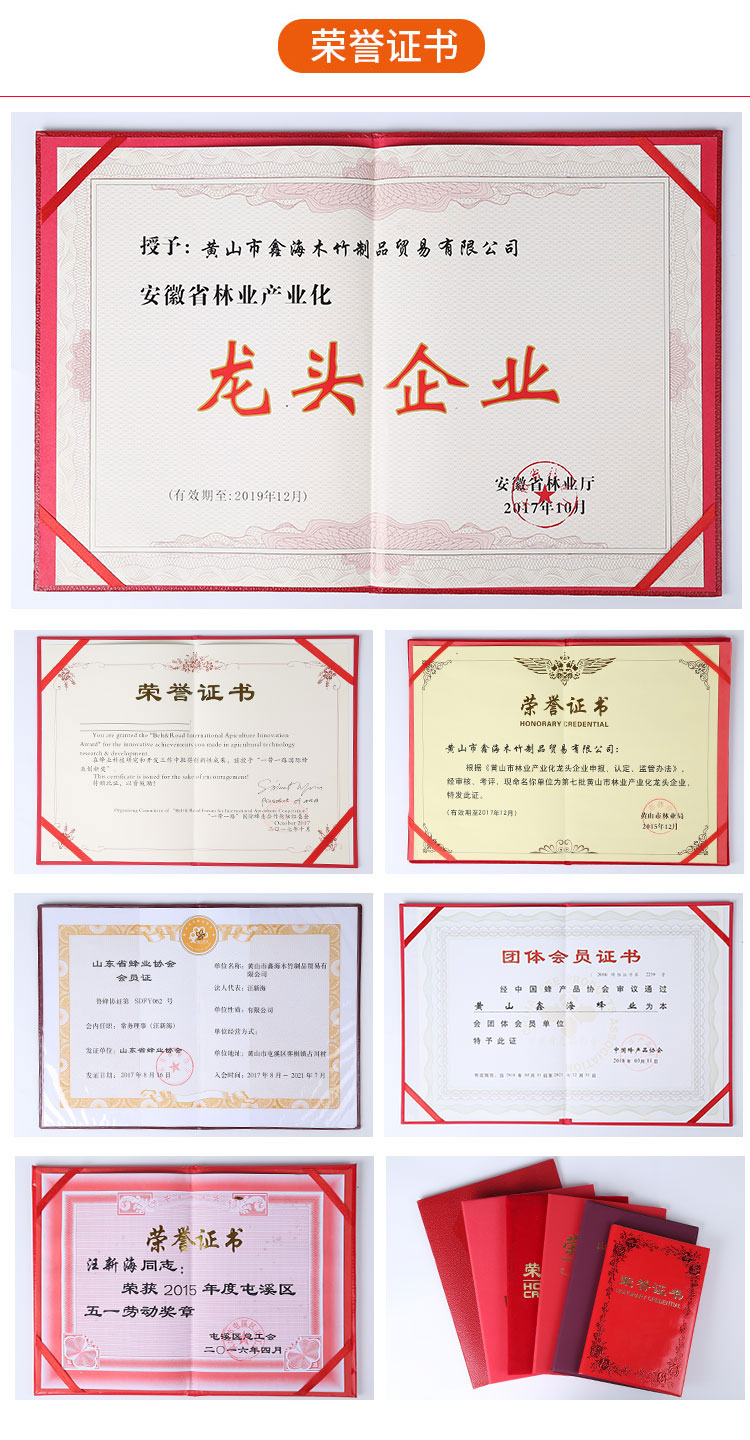 荣誉证书
授予：黄山市鑫海木竹制品贸易有限公司
安徽省林业产业化
龙头企业
(有效期至:2019年12月)
安徽省林业厅
2017年10月
荣誉证书
You are granted the "Belt& Road International Apiculture Innovation
Award" for the innovative achievements you made in apicultural technology
research & development.
在蜂业科技研究和开发工作中取得创新性成果，兹授予"一带一路国际蜂
业创新奖"
This certificate is issued for the sake of encouragement!
特颁此证，以资鼓励！
Organizing Committee of "Belt& Road Forum for International Apiculture Cooperation"
"一带一路"国际蜂业合作论坛组委会
October 2017
二〇一七年十月
荣誉证书
HONORARY CREDENTIAL
黄山市鑫海木竹制品贸易有限公司：
根据《黄山市林业产业化龙头企业申报、认定、监管办法》，
经审核、考评，现命名你单位为第七批黄山市林业产业化龙头企业，
特发此证。
(有效期至2017年12月)
黄山市林业局
2015年12月
山东省蜂业协会
会员证
鲁蜂协证第 SDFY062 号
会内任职：常务理事（汪新海）
发证单位：山东省蜂业协会
发证日期：2017年8月16日
单位名称：黄山市鑫海木竹制品贸易有
限公司
法人代表：汪新海
单位性质：有限公司
单位经营方式：
单位地址：黄山市屯溪区奕棋镇占川村
入会时间：2017年8月－2021年7月
团体会员证书
经中国蜂产品协会审议通过
黄山鑫海蜂业为本
会团体会员单位
特予此证
中国蜂产品协会
荣誉证书
汪新海同志：
荣获2015年度屯溪区
五一劳动奖章
屯溪区总工会
二〇一六年四月
荣
HO
CR
荣
荣誉证书
HONORARY CREDENTIAL